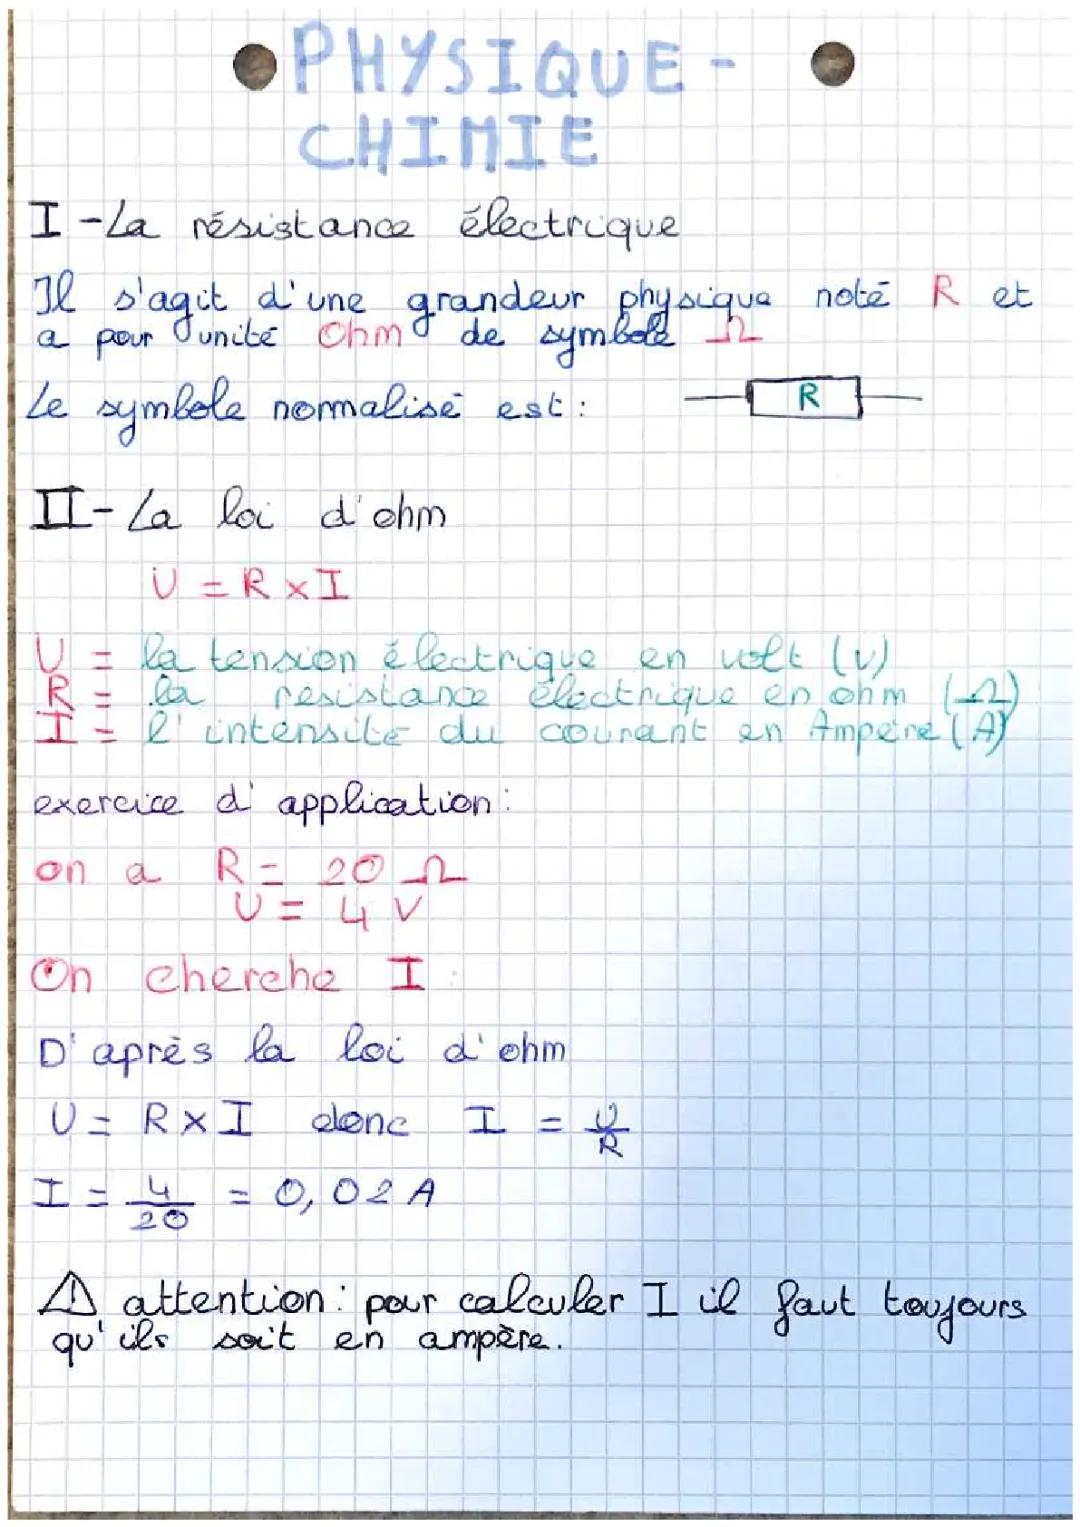 PHYSIQUE-
CHIMIE
I-La résistance électrique
Il s'agit d'une grandeur physique noté R et
a pour unité Ohm de symbole Ω
Le symbole normalisé est :
R
II-La loi d'ohm
U = R x I
U = la tension électrique en volt (v)
R = la résistance électrique en ohm (Ω)
I = l'intensité du courant en Ampère (A)
exercice d'application :
on a R = 20 Ω
U = 4 V
On cherche I :
D'après la loi d'ohm
U = R x I donc I = U/R
I = 4/20 = 0,02 A
⚠ attention : pour calculer I il faut toujours
qu'ils soit en ampère.